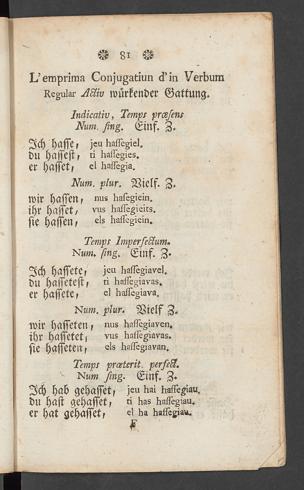 ❉ 81 ❉
L'emprima Conjugatiun d'in Verbum
Regular Activ würkender Gattung.
Indicativ, Temps præsens
Num. sing. Einf. Z.
Ich hasse, jeu hassegiel.
du hassest, ti hassegies.
er hasset, el hassegia.
Num. plur. Vielf. Z.
wir hassen, nus hasegiein.
ihr hasset, vus hassegieits.
sie hassen, els hasegiein.
Temps Imperfectum.
Num. sing. Einf. Z.
Ich hassete, jeu hassegiavel.
du hassetest, ti hassegiavas.
er hassete, el hassegiava.
Num. plur. Vielf Z.
wir hasseten, nus hassegiaven.
ihr hassetet, vus hassegiavas.
sie hasseten, els hassegiavan.
Temps præterit. perfect.
Num sing. Einf. Z.
Ich hab gehasset, jeu hai hassegiau.
du hast gehasset, ti has hassegiau.
er hat gehasset, el ha hassegiau.
F